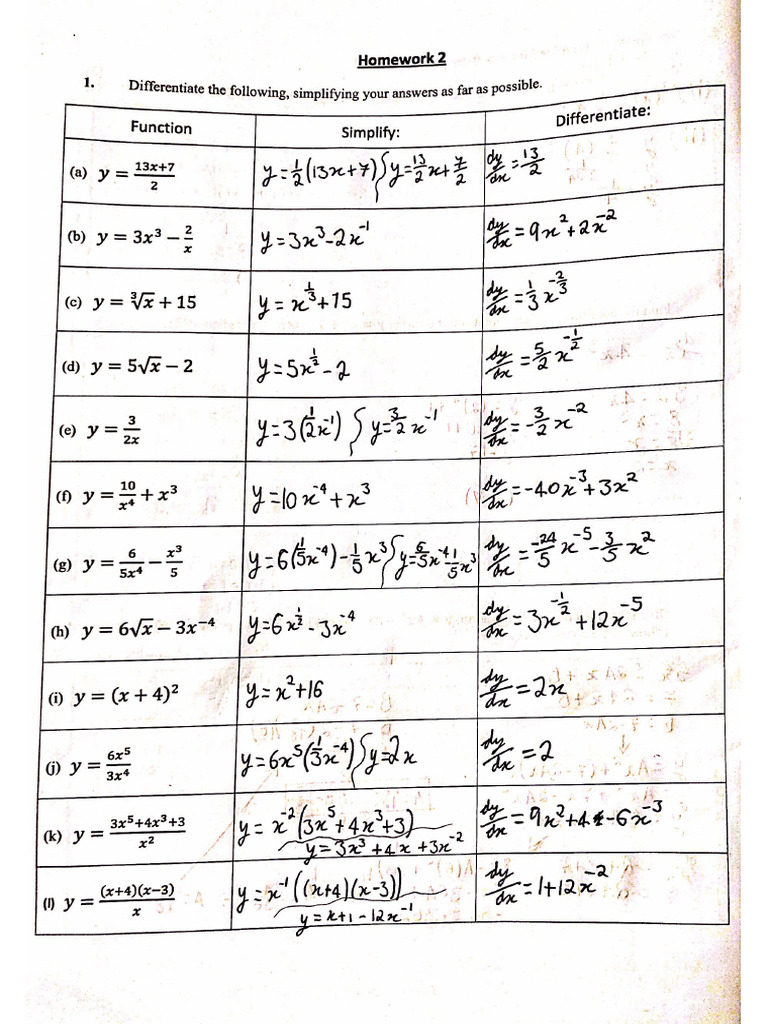 Homework 2
1. Differentiate the following, simplifying your answers as far as possible.
Function Simplify: Differentiate:
(a) y = (13x+7)/2 y = 1/2(13x+7) } y = 13/2 x + 7/2 dy/dx = 13/2
(b) y = 3x³ − 2/x y = 3x³ − 2x⁻¹ dy/dx = 9x² + 2x⁻²
(c) y = ∛x + 15 y = x^(1/3) + 15 dy/dx = 1/3 x^(−2/3)
(d) y = 5√x − 2 y = 5x^(1/2) − 2 dy/dx = 5/2 x^(−1/2)
(e) y = 3/(2x) y = 3(1/2 x⁻¹) } y = 3/2 x⁻¹ dy/dx = −3/2 x⁻²
(f) y = 10/x⁴ + x³ y = 10x⁻⁴ + x³ dy/dx = −40x⁻³ + 3x²
(g) y = 6/(5x⁴) − x³/5 y = 6(1/5 x⁻⁴) − 1/5 x³ } y = 6/5 x⁻⁴ − 1/5 x³ dy/dx = −24/5 x⁻⁵ − 3/5 x²
(h) y = 6√x − 3x⁻⁴ y = 6x^(1/2) − 3x⁻⁴ dy/dx = 3x^(−1/2) + 12x⁻⁵
(i) y = (x + 4)² y = x² + 16 dy/dx = 2x
(j) y = 6x⁵/(3x⁴) y = 6x⁵(1/3 x⁻⁴) } y = 2x dy/dx = 2
(k) y = (3x⁵+4x³+3)/x² y = x⁻²(3x⁵ + 4x³ + 3) dy/dx = 9x² + 4 − 6x⁻³
y = 3x³ + 4x + 3x⁻²
(l) y = (x+4)(x−3)/x y = x⁻¹((x+4)(x−3)) dy/dx = 1 + 12x⁻²
y = x + 1 − 12x⁻¹